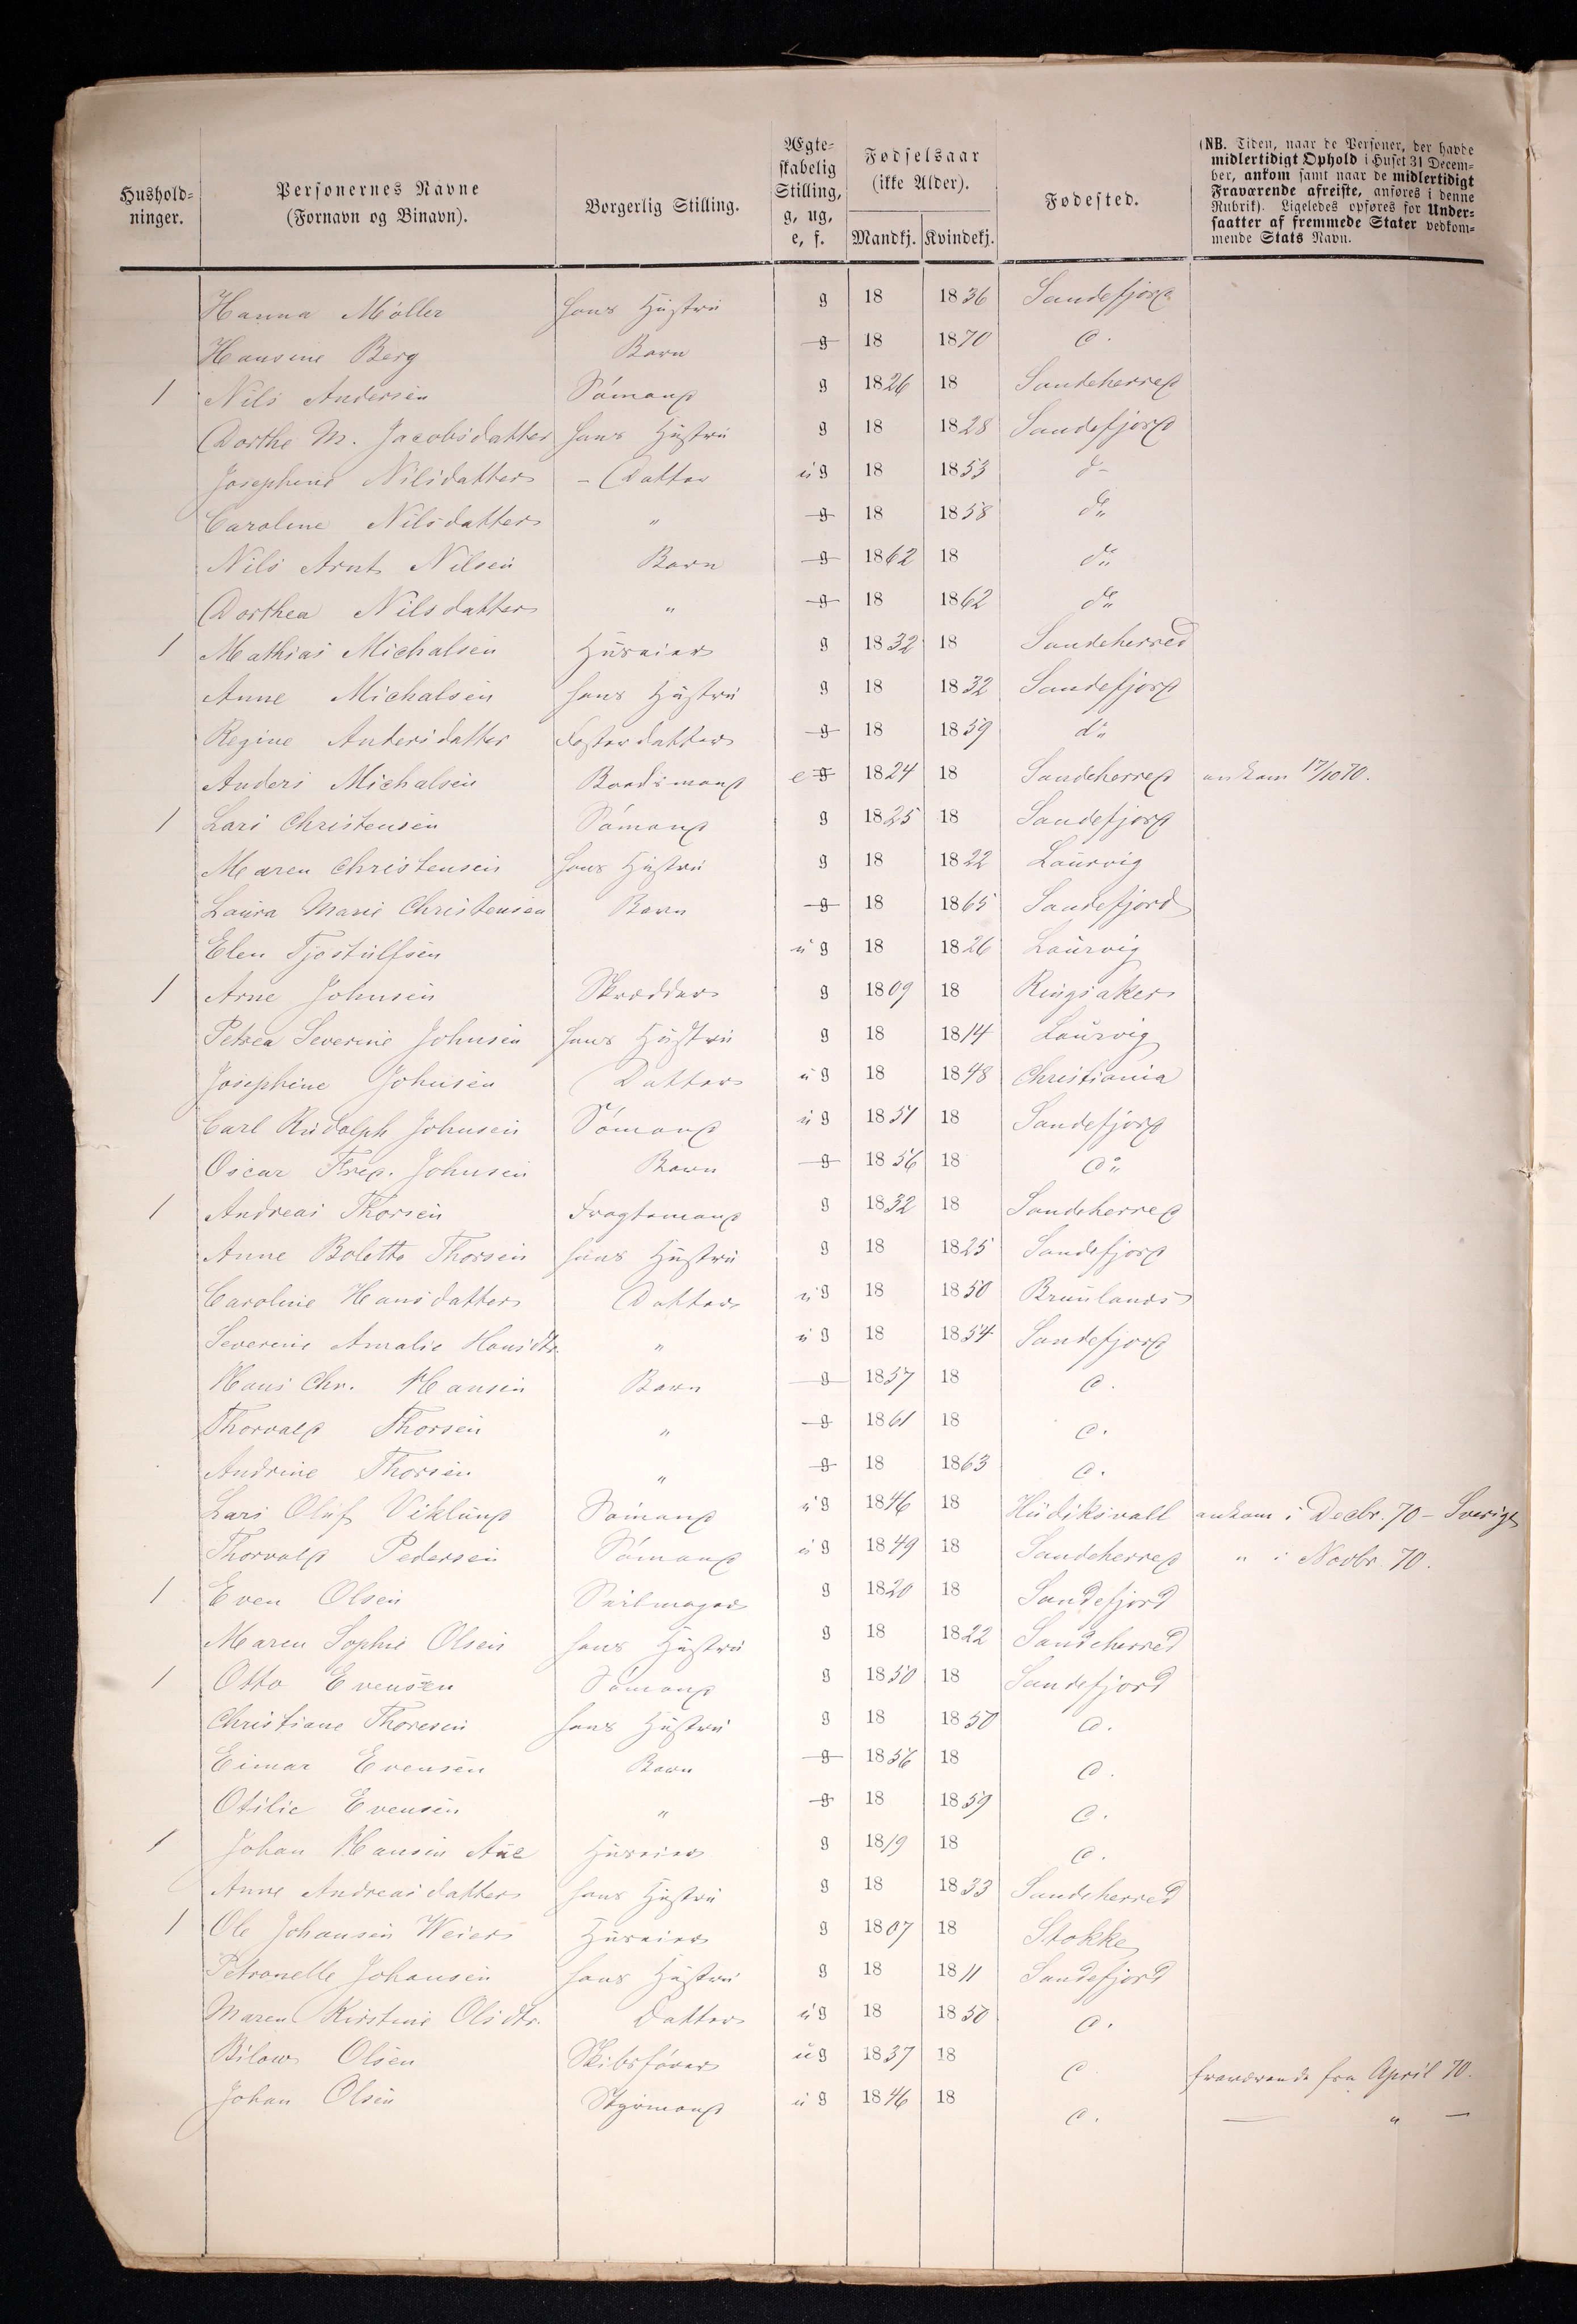 Hushold-
ninger.
Personernes Navne
(Fornavn og Binavn).
Borgerlig Stilling.
Ægte-
skabelig
Stilling,
g, ug,
e, f.
Fødselsaar
(ikke Alder).
Mandkj. Kvindekj.
Fødested.
(NB. Tiden, naar de Personer, der havde
midlertidigt Ophold i Huset 31 Decem-
ber, ankom samt naar de midlertidigt
Fraværende afreiste, anføres i denne
Rubrik). Ligeledes opføres for Under-
saatter af fremmede Stater vedkom-
mende Stats Navn.
Hanna Möller hans Hustru g 18 1836 Sandefjord
Hansine Berg Barn g 18 1870 d.
1 Nils Andersen Sömand g 1826 18 Sandeherred
Dorthe M. Jacobsdatter hans Hustru g 18 1828 Sandefjord
Josephine Nilsdatter - Datter ug 18 1853 d-
Caroline Nilsdatter " g 18 1858 do
Nils Arnt Nilsen Barn g 1862 18 do
Dorthea Nilsdatter " g 18 1862 do
1 Mathias Michalsen Huseier g 1832 18 Sandeherred
Anne Michalsen hans Hustru g 18 1832 Sandefjord
Regine Andersdatter Fosterdatter g 18 1859 do
Anders Michalsen Baadsmand e g 1824 18 Sandeherred ankom 17/10 70.
1 Lars Christensen Sömand g 1825 18 Sandefjord
Maren Christensen hans Hustru g 18 1822 Laurvig
Laura Marie Christensen Barn g 18 1865 Sandefjord
Elen Tjostulfsen ug 18 1826 Laurvig
1 Arne Johnsen Skrædder g 1809 18 Ringsaker
Petrea Severine Johnsen hans Hustru g 18 1814 Laurvig
Josephine Johnsen Datter ug 18 1848 Christiania
Carl Rudolph Johnsen Sömand ug 1851 18 Sandefjord
Oscar Fred. Johnsen Barn g 1856 18 do
1 Andreas Thorsen Fragtemand g 1832 18 Sandeherred
Anne Bolette Thorsen hans Hustru g 18 1825 Sandefjord
Caroline Hansdatter Datter ug 18 1850 Brunlands
Severine Amalie Hansdtr. " ug 18 1854 Sandefjord
Hans Chr. Hansen Barn g 1857 18 d.
Thorvald Thorsen " g 1861 18 d.
Andrine Thorsen " g 18 1863 d.
Lars Oluf Viklund Sömand ug 1846 18 Hudiksvall ankom i Decbr. 70 - Sverige
Thorvald Pedersen Sömand ug 1849 18 Sandeherred " i Novbr. 70.
1 Even Olsen Seilmager g 1820 18 Sandefjord
Maren Sophie Olsen hans Hustru g 18 1822 Sandeherred
1 Otto Evensen Sömand g 1850 18 Sandefjord
Christiane Thoresen hans Hustru g 18 1850 d.
Eimar Evensen Barn g 1856 18 d.
Otilie Evensen " g 18 1859 d.
1 Johan Hansen Aue Huseier g 1819 18 d.
Anne Andreasdatter hans Hustru g 18 1833 Sandeherred
1 Ole Johansen Weier Huseier g 1807 18 Stokke
Petronelle Johansen hans Hustru g 18 1811 Sandefjord
Maren Kirstine Olsdtr. Datter ug 18 1850 d.
Bilow Olsen Skibsförer ug 1837 18 d fraværende fra April 70.
Johan Olsen Styrmand ug 1846 18 d. — " —